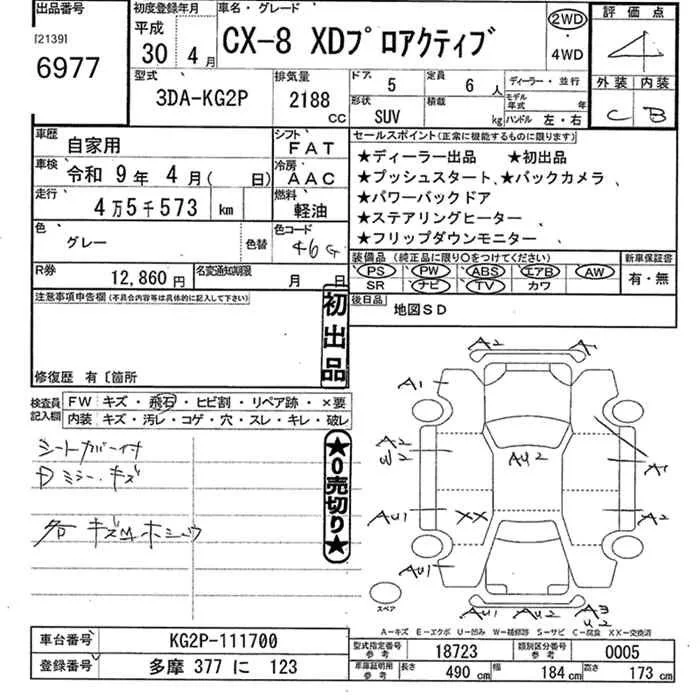 出品番号 初度登録年月 車名・グレード 2WD 評価点
[2139] 平成
6977 30年 4月 CX-8 XDプロアクティブ ・ 4WD 4
型式 排気量 ドア 5 定員 6人 ディーラー・並行 外装 内装
3DA-KG2P 2188 CC 形状 SUV 積載 kg モデル年式 年 ハンドル 左・右 C B
車歴 自家用 シフト FAT セールスポイント(正常に機能するものに限ります)
車検 令和 9年 4月( 日) 冷房 AAC ★ディーラー出品 ★初出品
★プッシュスタート、★バックカメラ
走行 4万5千573 km 燃料 軽油 ★パワーバックドア
★ステアリングヒーター
色 グレー 色替 色コード 46G ★フリップダウンモニター
装備品(純正品に限り○をつけてください) 新車保証書
R券 12,860円 名変通知期限 月 日 PS PW ABS エアB AW 有・無
SR ナビ TV カワ
注意事項申告欄(不具合内容等は具体的に記入して下さい) 後日品 地図SD
初出品
修復歴 有〔箇所
検査員記入欄 FW キズ・飛石・ヒビ割・リペア跡・×要
内装 キズ・汚レ・コゲ・穴・スレ・キレ・破レ
シートカバー付
Dミラーキズ
各キズMホシュウ
★0売切り★
A2 A1
A1
A2
W2 AU2 A1
AU1 XX A2
AU1
スペア AU1 AU2 A3
U2
A-キズ E-エクボ U-凹み W-補修跡 S-サビ C-腐食 XX-交換済
車台番号 KG2P-111700 型式指定番号 参考 18723 類別区分番号 参考 0005
登録番号 多摩 377 に 123 車庫証明用 参考 長さ 490 cm 幅 184 cm 高さ 173 cm